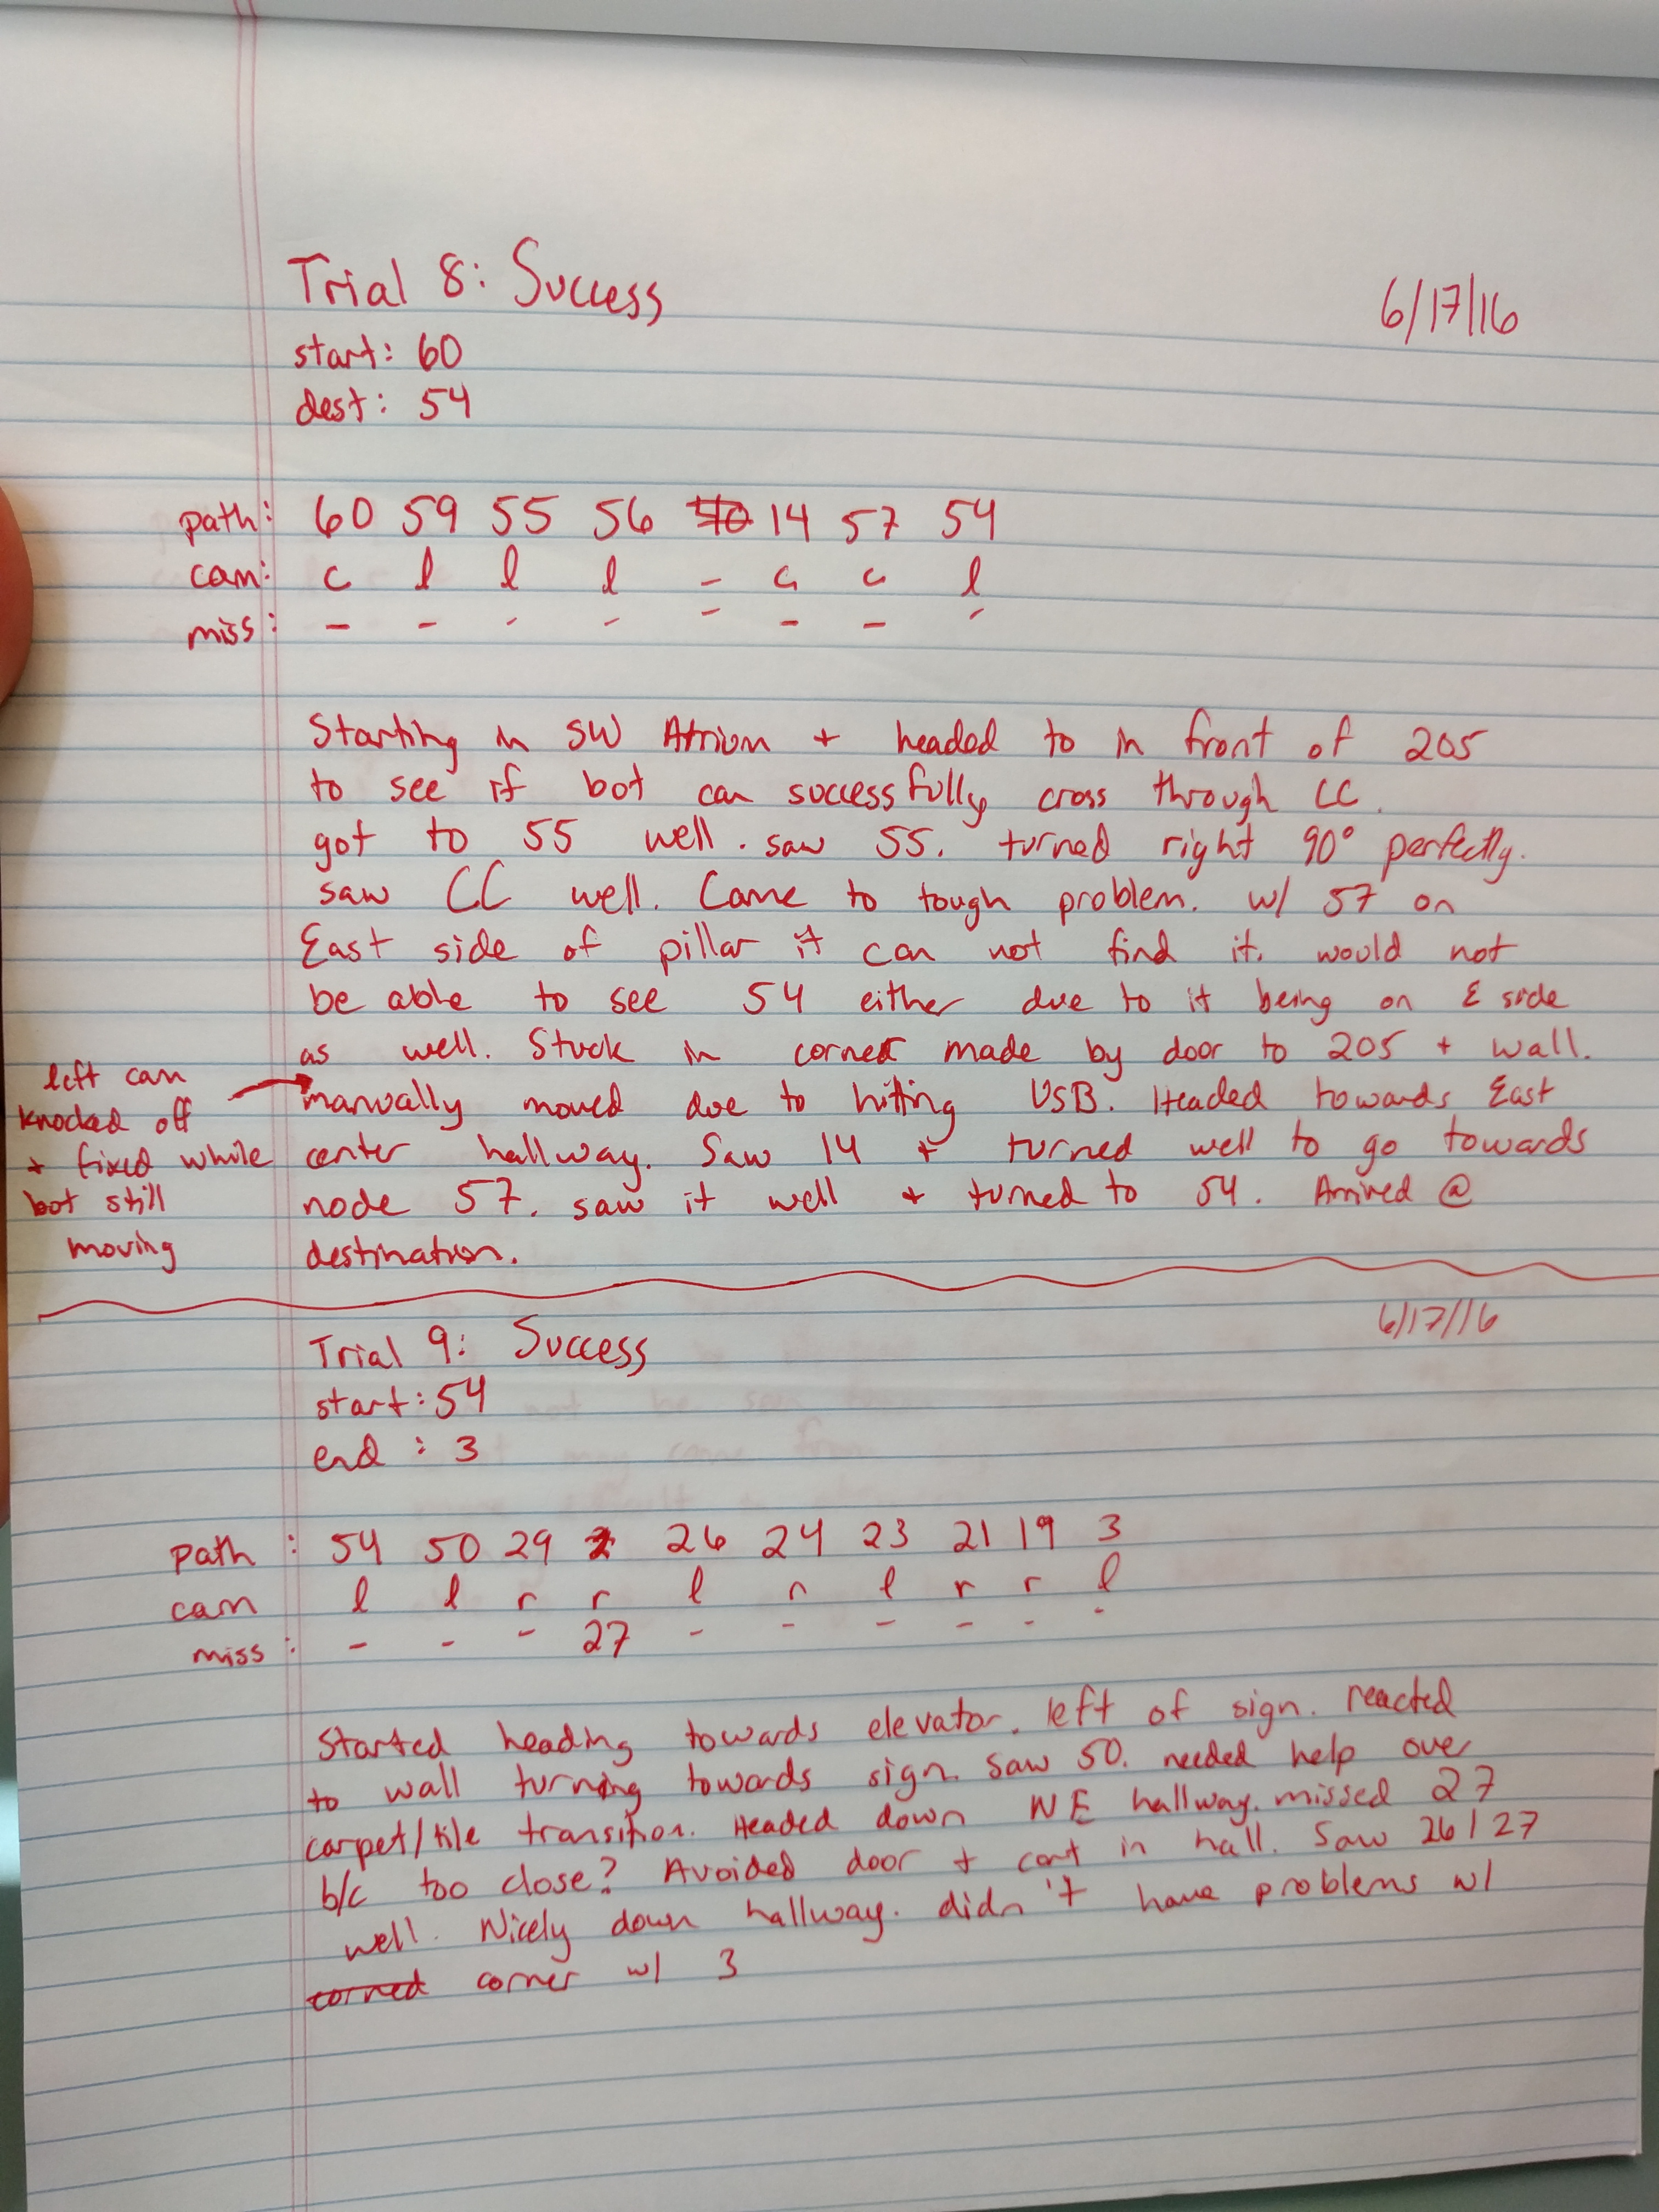 Trial 8: Success
6/17/16
start: 60
dest: 54
path: 60 59 55 56 14 57 54
cam: c l l l - c c l
miss: - - - - - - - -
Starting in SW Atrium + headed to in front of 205
to see if bot can successfully cross through CC.
got to 55 well. saw 55. turned right 90° perfectly.
saw CC well. Came to tough problem. w/ 57 on
East side of pillar it can not find it. would not
be able to see 54 either due to it being on E side
as well. Stuck in corner made by door to 205 + wall.
manually moved due to hitting USB. Headed towards East
center hallway. Saw 14 + turned well to go towards
node 57. saw it well + turned to 54. Arrived @
destination.
left cam
knocked off
+ fixed while
bot still
moving
6/17/16
Trial 9: Success
start: 54
end : 3
path : 54 50 29 26 24 23 21 19 3
cam l l r r l r l r r l
miss : - - - 27 - - - - - -
Started heading towards elevator. left of sign. reacted
to wall turning towards sign. Saw 50. needed help over
carpet/tile transition. Headed down NE hallway. missed 27
b/c too close? Avoided door + cont in hall. Saw 26/27
well. Nicely down hallway. didn't have problems w/
corned corner w/ 3